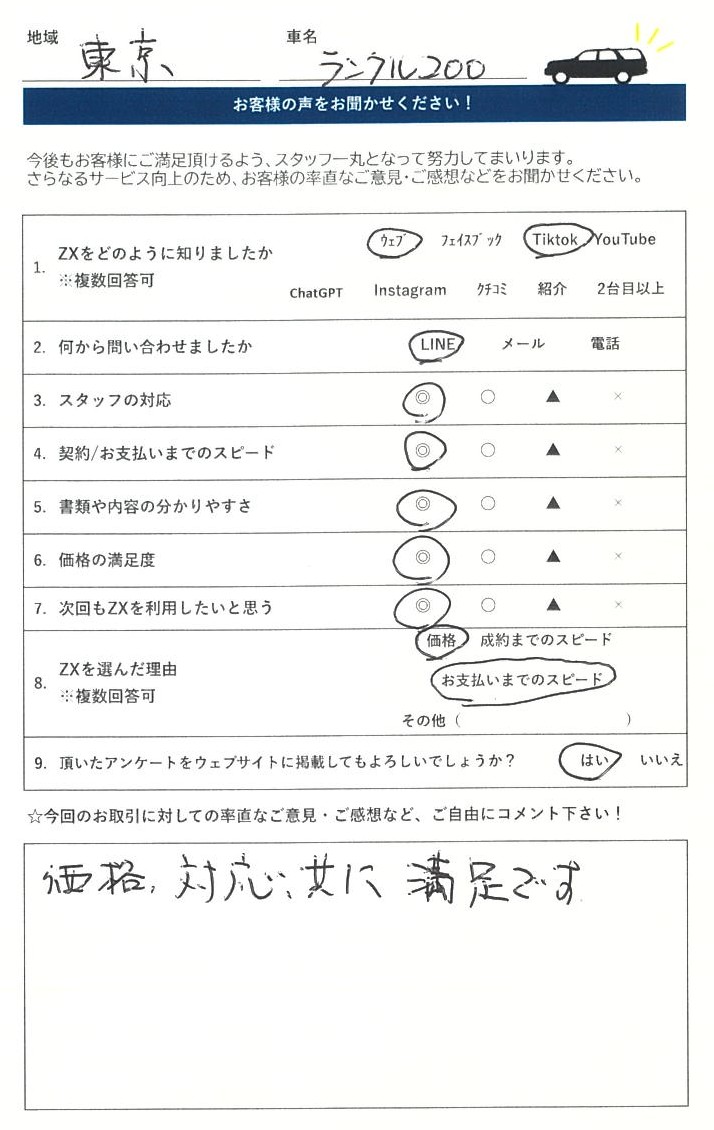 地域 東京 車名 ランクル200
お客様の声をお聞かせください！
今後もお客様にご満足頂けるよう、スタッフ一丸となって努力してまいります。
さらなるサービス向上のため、お客様の率直なご意見・ご感想などをお聞かせください。
1. ZXをどのように知りましたか
※複数回答可
ｳｪﾌﾞ ﾌｪｲｽﾌﾞｯｸ Tiktok YouTube
ChatGPT Instagram ｸﾁｺﾐ 紹介 2台目以上
2. 何から問い合わせましたか LINE メール 電話
3. スタッフの対応 ◎ ○ ▲ ×
4. 契約/お支払いまでのスピード ◎ ○ ▲ ×
5. 書類や内容の分かりやすさ ◎ ○ ▲ ×
6. 価格の満足度 ◎ ○ ▲ ×
7. 次回もZXを利用したいと思う ◎ ○ ▲ ×
8. ZXを選んだ理由
※複数回答可
価格 成約までのスピード
お支払いまでのスピード
その他（ ）
9. 頂いたアンケートをウェブサイトに掲載してもよろしいでしょうか？ はい いいえ
☆今回のお取引に対しての率直なご意見・ご感想など、ご自由にコメント下さい！
価格、対応、共に満足です